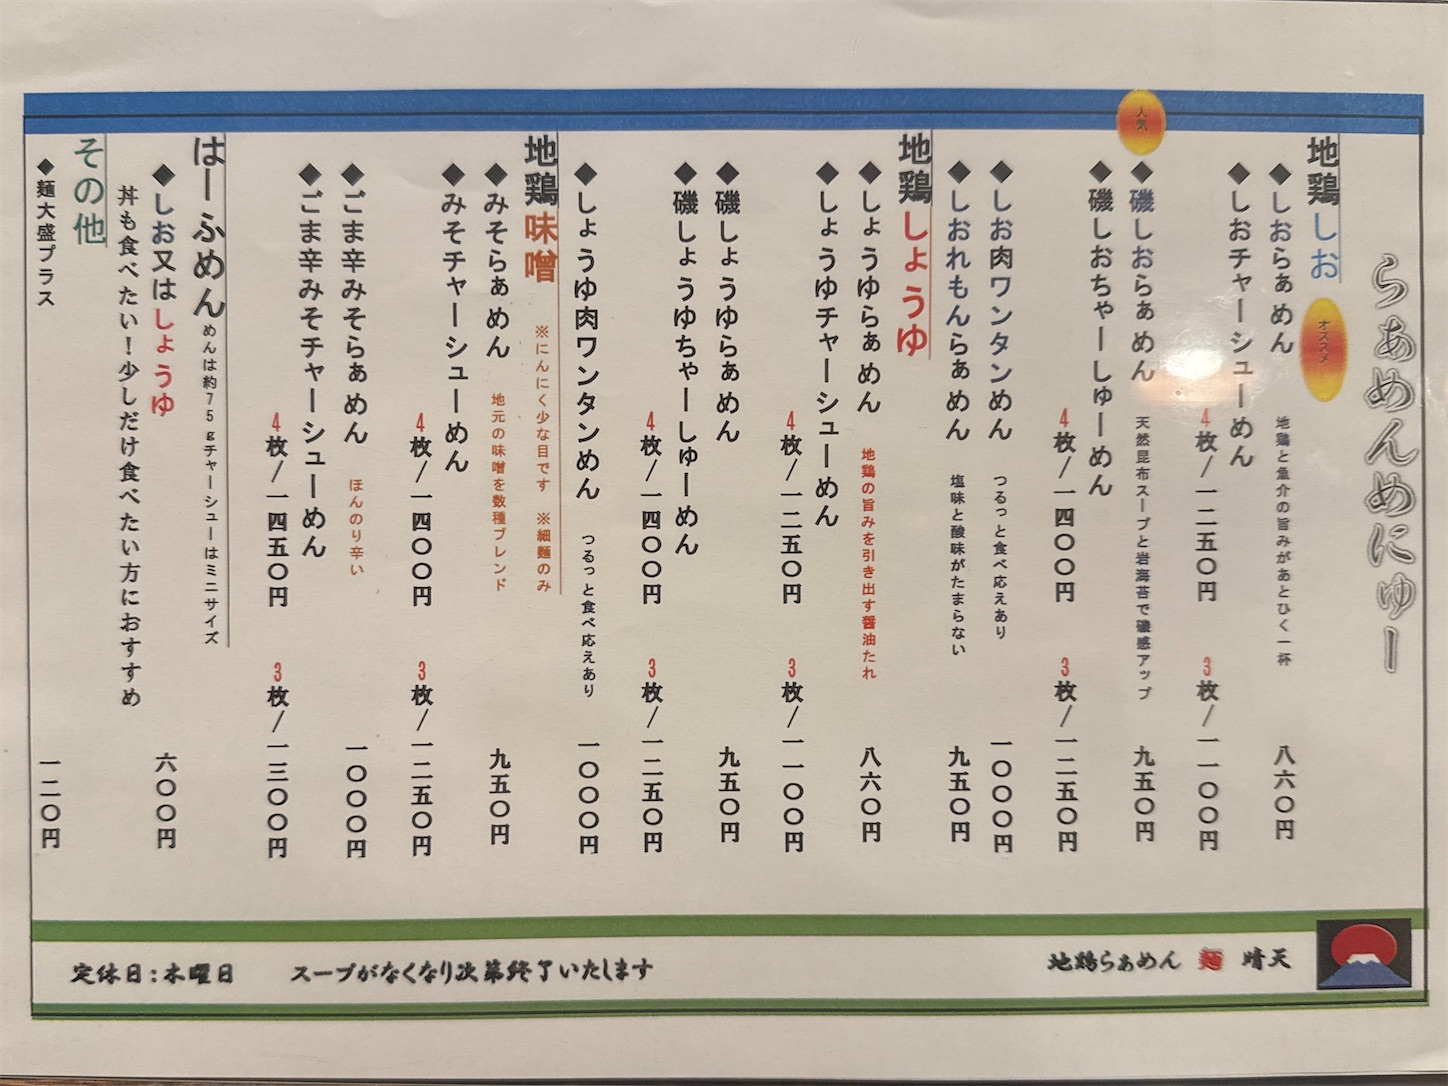 らぁめんめにゅー
地鶏しお オススメ
◆しおらぁめん 地鶏と魚介の旨みがあとひく一杯 八六〇円
◆しおチャーシューめん
4枚/一二五〇円 3枚/一一〇〇円
人気
◆磯しおらぁめん 天然昆布スープと岩海苔で磯感アップ 九五〇円
◆磯しおちゃーしゅーめん
4枚/一四〇〇円 3枚/一二五〇円
◆しお肉ワンタンめん つるっと食べ応えあり 一〇〇〇円
◆しおれもんらぁめん 塩味と酸味がたまらない 九五〇円
地鶏しょうゆ
◆しょうゆらぁめん 地鶏の旨みを引き出す醤油たれ 八六〇円
◆しょうゆチャーシューめん
4枚/一二五〇円 3枚/一一〇〇円
◆磯しょうゆらぁめん 九五〇円
◆磯しょうゆちゃーしゅーめん
4枚/一四〇〇円 3枚/一二五〇円
◆しょうゆ肉ワンタンめん つるっと食べ応えあり 一〇〇〇円
地鶏味噌 ※にんにく少な目です ※細麺のみ
◆みそらぁめん 地元の味噌を数種ブレンド 九五〇円
◆みそチャーシューめん
4枚/一四〇〇円 3枚/一二五〇円
◆ごま辛みそらぁめん ほんのり辛い 一〇〇〇円
◆ごま辛みそチャーシューめん
4枚/一四五〇円 3枚/一三〇〇円
はーふめん めんは約75gチャーシューはミニサイズ
◆しお又はしょうゆ 六〇〇円
丼も食べたい！少しだけ食べたい方におすすめ
その他
◆麺大盛プラス 一二〇円
地鶏らぁめん 麺 晴天
定休日：木曜日 スープがなくなり次第終了いたします